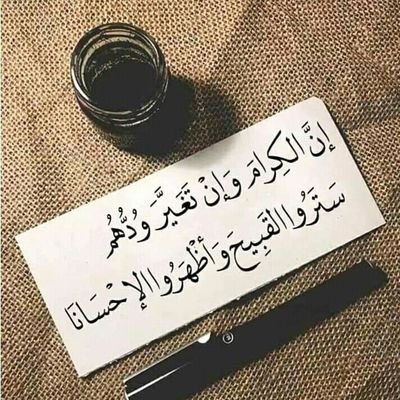 إنَّ الكِرامَ وَإنْ تَغَيَّرَ وُدُّهُمُ
سَتَرُوا القَبِيحَ وَأظْهَرُوا الإحْسَانَا